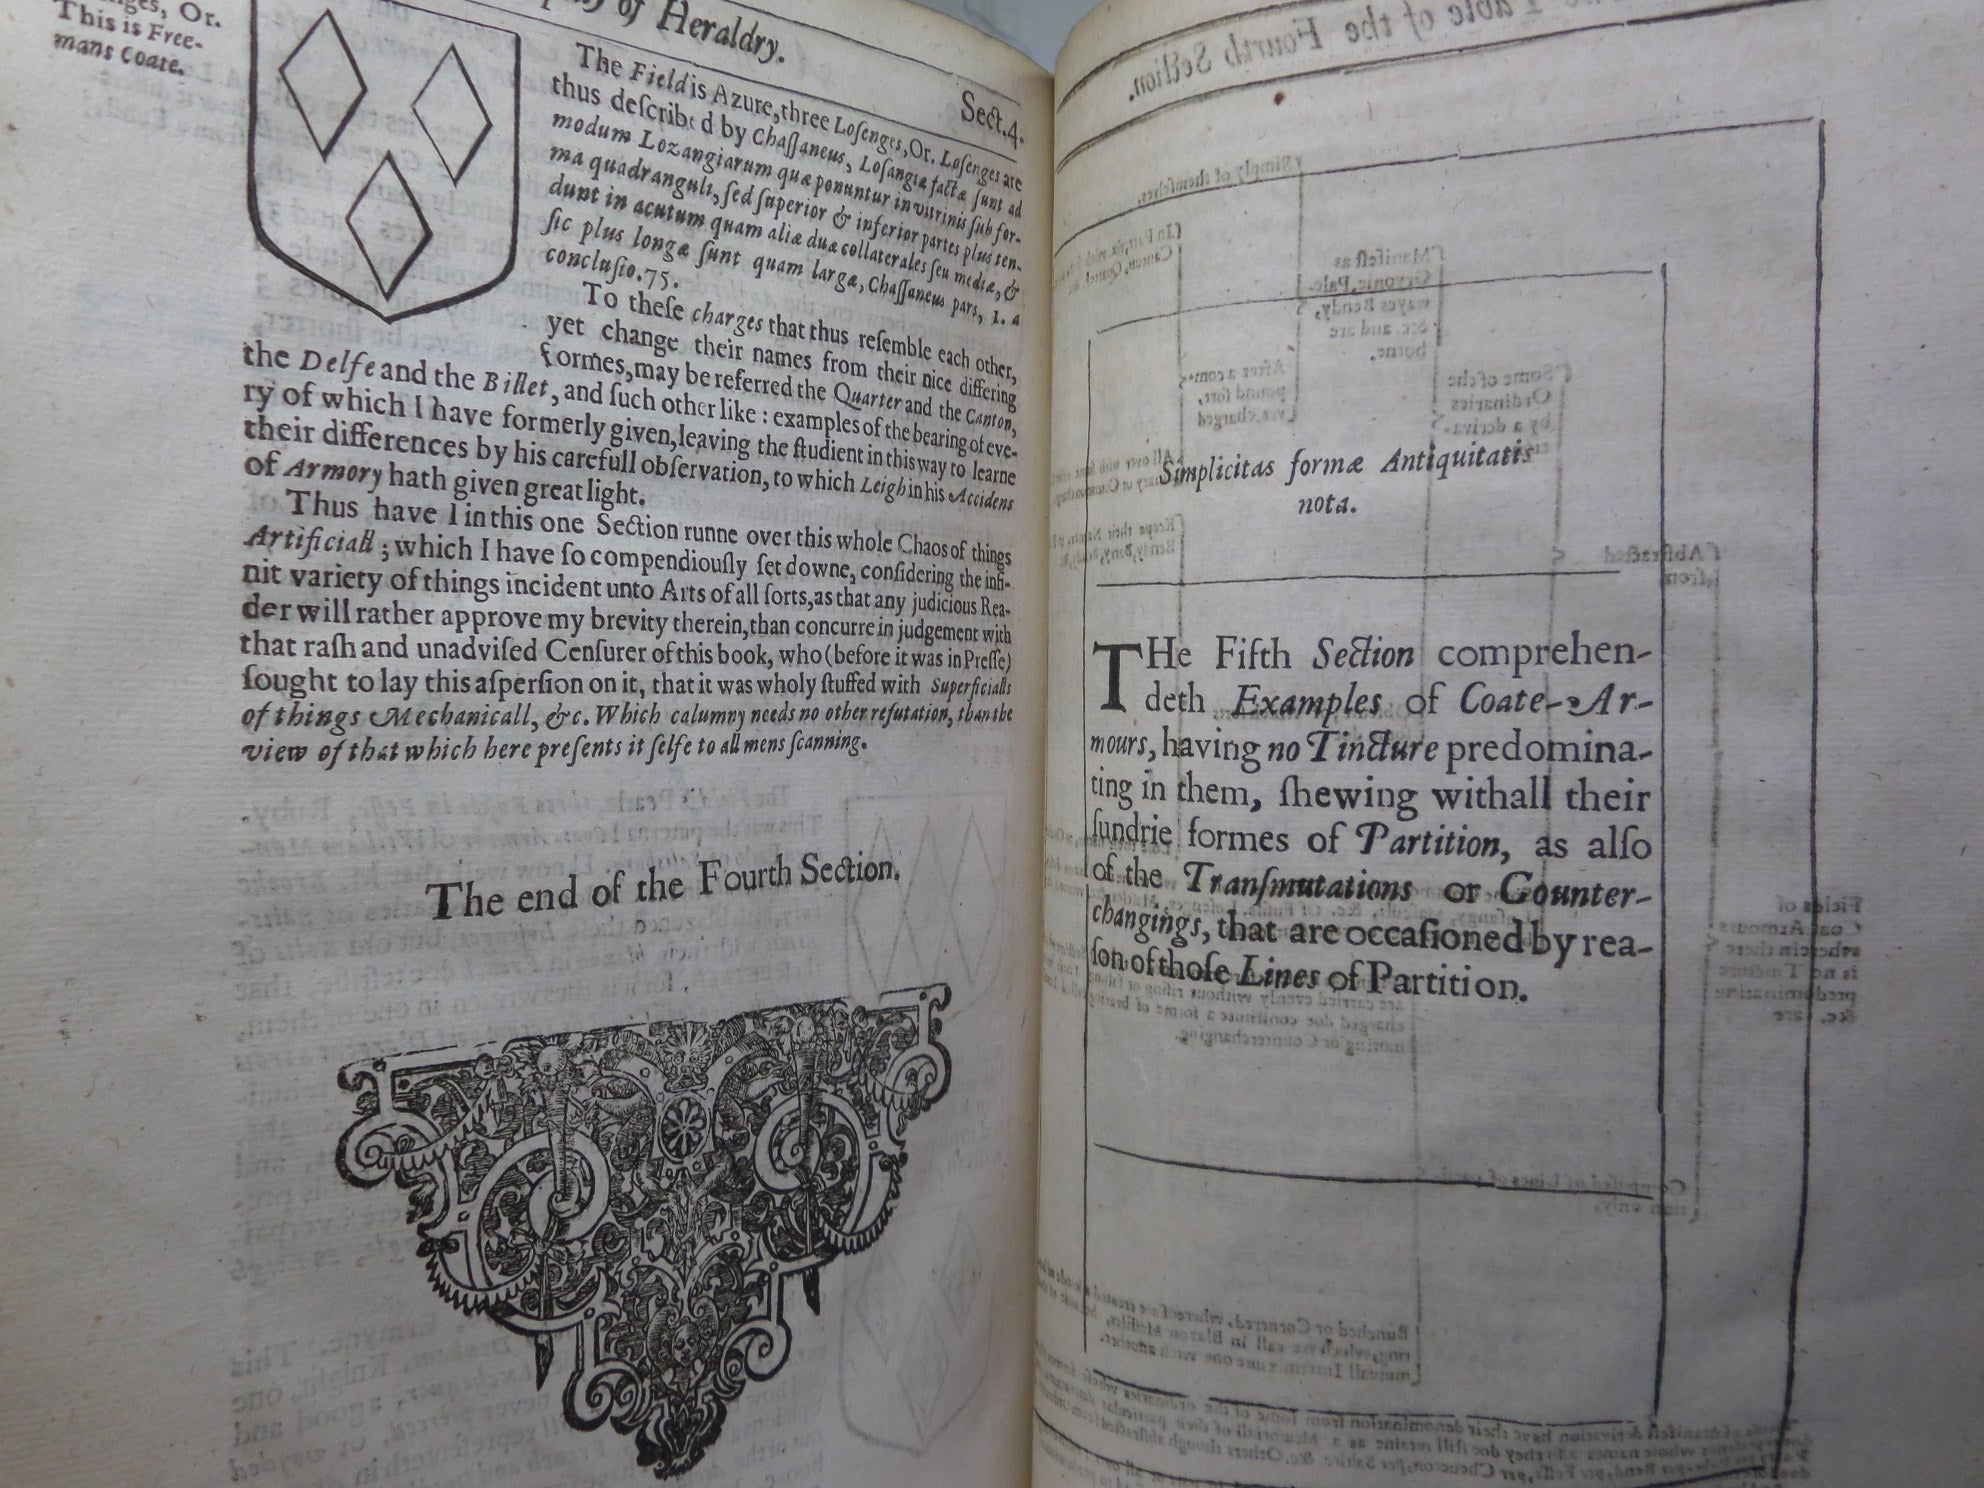 of Heraldry.
Sect.4.
Or.
This is Free-
mans Coate.
The Field is Azure, three Loſenges, Or. Loſenges are
thus deſcribed by Chaſſaneus, Loſangiæ factæ ſunt ad
modum Lozangiarum quæ ponuntur in vitrinis ſub for-
ma quadranguli, ſed ſuperior & inferior partes plus ten-
dunt in acutum quam aliæ duæ collaterales ſeu mediæ, &
ſic plus longæ ſunt quam largæ, Chaſſaneus pars, 1.
concluſio. 75.
To theſe charges that thus reſemble each other,
yet change their names from their nice differing
formes, may be referred the Quarter and the Canton,
the Delfe and the Billet, and ſuch other like : examples of the bearing of eve-
ry of which I have formerly given, leaving the ſtudient in this way to learne
their differences by his carefull obſervation, to which Leigh in his Accidens
of Armory hath given great light.
Thus have I in this one Section runne over this whole Chaos of things
Artificiall ; which I have ſo compendiouſly ſet downe, conſidering the infi-
nit variety of things incident unto Arts of all ſorts, as that any judicious Rea-
der will rather approve my brevity therein, than concurre in judgement with
that raſh and unadviſed Cenſurer of this book, who (before it was in Preſſe)
ſought to lay this aſperſion on it, that it was wholy ſtuffed with Superficialls
of things Mechanicall, &c. Which calumny needs no other refutation, than the
view of that which here preſents it ſelfe to all mens ſcanning.
The end of the Fourth Section.
Simplicitas formæ Antiquitatis
nota.
THe Fifth Section comprehen-
deth Examples of Coate-Ar-
mours, having no Tincture predomina-
ting in them, ſhewing withall their
ſundrie formes of Partition, as alſo
of the Tranſmutations or Counter-
changings, that are occaſioned by rea-
ſon of thoſe Lines of Partition.